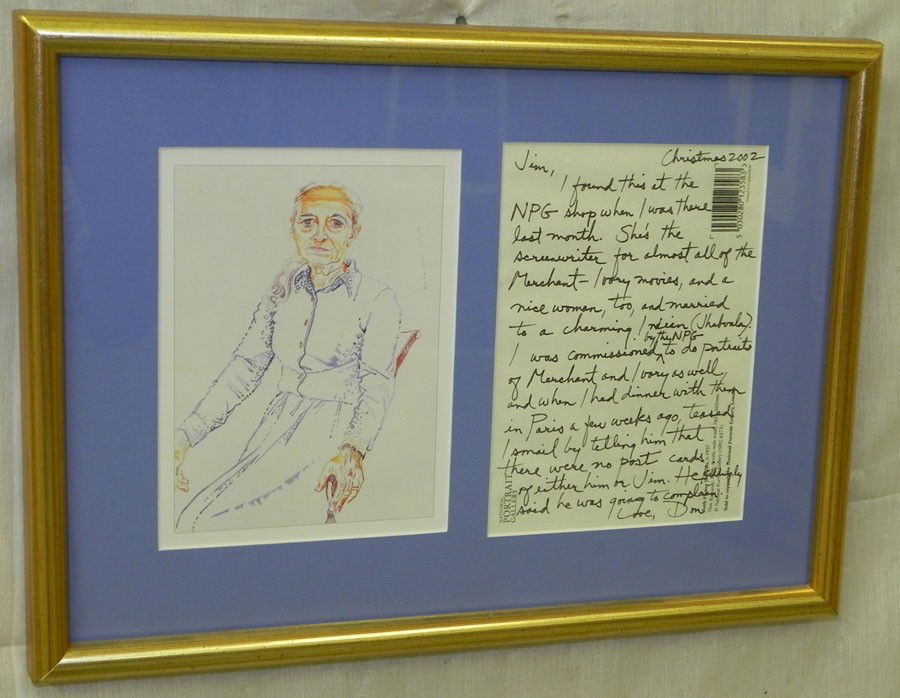 Jim, Christmas 2002
I found this at the
NPG shop when I was there
last month. She's the
screenwriter for almost all of the
Merchant-Ivory movies, and a
nice woman, too, and married
to a charming Indian (Jhabvala).
I was commissioned by the NPG to do portraits
of Merchant and Ivory as well,
and when I had dinner with them
in Paris a few weeks ago, teased
Ismail by telling him that
there were no post cards
of either him or Jim. He
said he was going to complain.
Love, Don
PORTRAIT
GALLERY